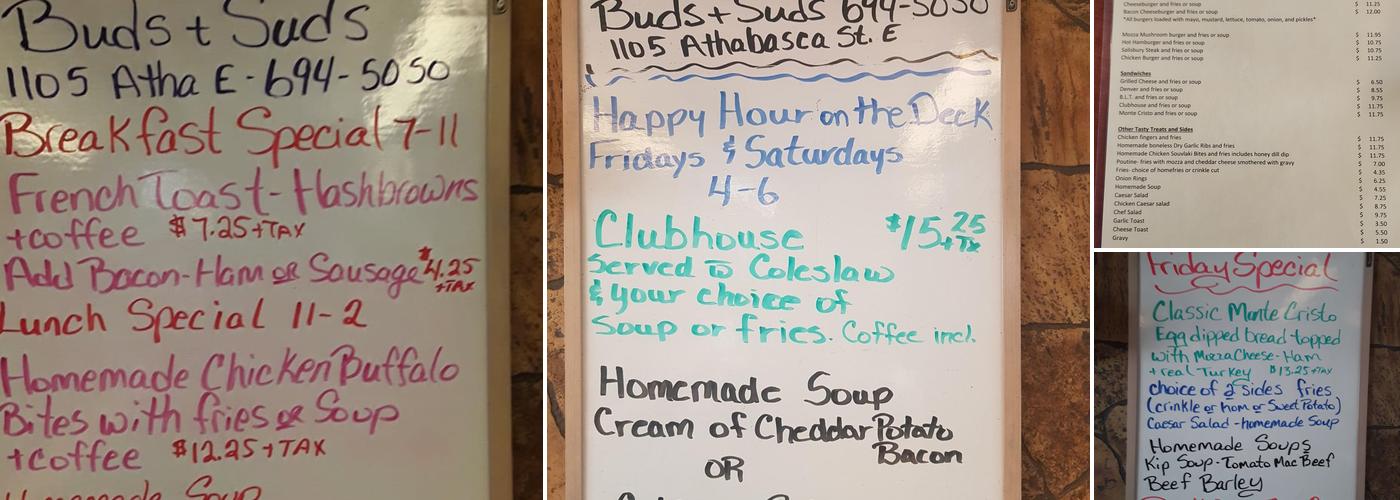 Buds + Suds
1105 Atha E - 694-5050
Breakfast Special 7-11
French Toast - Hashbrowns
+coffee $7.25+TAX
Add Bacon-Ham or Sausage $4.25
+TAX
Lunch Special 11-2
Homemade Chicken Buffalo
Bites with fries or Soup
+coffee $12.25+TAX
Homemade Soup
Buds + Suds 694-5050
1105 Athabasca St. E
Happy Hour on the Deck
Fridays & Saturdays
4-6
Clubhouse $15.25
+TX
Served w Coleslaw
& your choice of
Soup or fries. Coffee incl.
Homemade Soup
Cream of Cheddar Potato
Bacon
OR
Cheeseburger and fries or soup $ 11.25
Bacon Cheeseburger and fries or soup $ 12.00
*All burgers loaded with mayo, mustard, lettuce, tomato, onion, and pickles*
Mozza Mushroom burger and fries or soup $ 11.95
Hot Hamburger and fries or soup $ 10.75
Salisbury Steak and fries or soup $ 10.75
Chicken Burger and fries or soup $ 11.25
Sandwiches
Grilled Cheese and fries or soup $ 6.50
Denver and fries or soup $ 8.55
B.L.T. and fries or soup $ 9.75
Clubhouse and fries or soup $ 11.75
Monte Cristo and fries or soup $ 11.75
Other Tasty Treats and Sides
Chicken fingers and fries $ 11.75
Homemade boneless Dry Garlic Ribs and fries $ 11.75
Homemade Chicken Souvlaki Bites and fries includes honey dill dip $ 11.75
Poutine- fries with mozza and cheddar cheese smothered with gravy $ 7.00
Fries- choice of homefries or crinkle cut $ 4.35
Onion Rings $ 6.25
Homemade Soup $ 4.55
Caesar Salad $ 7.25
Chicken Caesar salad $ 8.75
Chef Salad $ 9.75
Garlic Toast $ 3.50
Cheese Toast $ 5.50
Gravy $ 1.50
Friday Special
Classic Monte Cristo
Egg dipped bread topped
with Mozza Cheese - Ham
+ real Turkey $13.25+TAX
choice of 2 sides fries
(crinkle or hom or Sweet Potato)
Caesar Salad - homemade Soup
Homemade Soups
Kip Soup - Tomato Mac Beef
Beef Barley